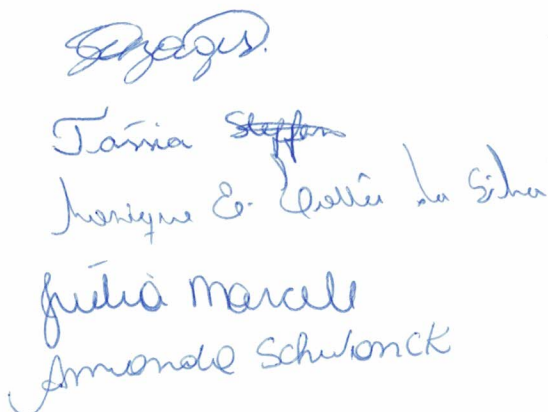 Tássia Steffen
Monique E. da Silva
Júlia Marcell
Amanda Schwonck